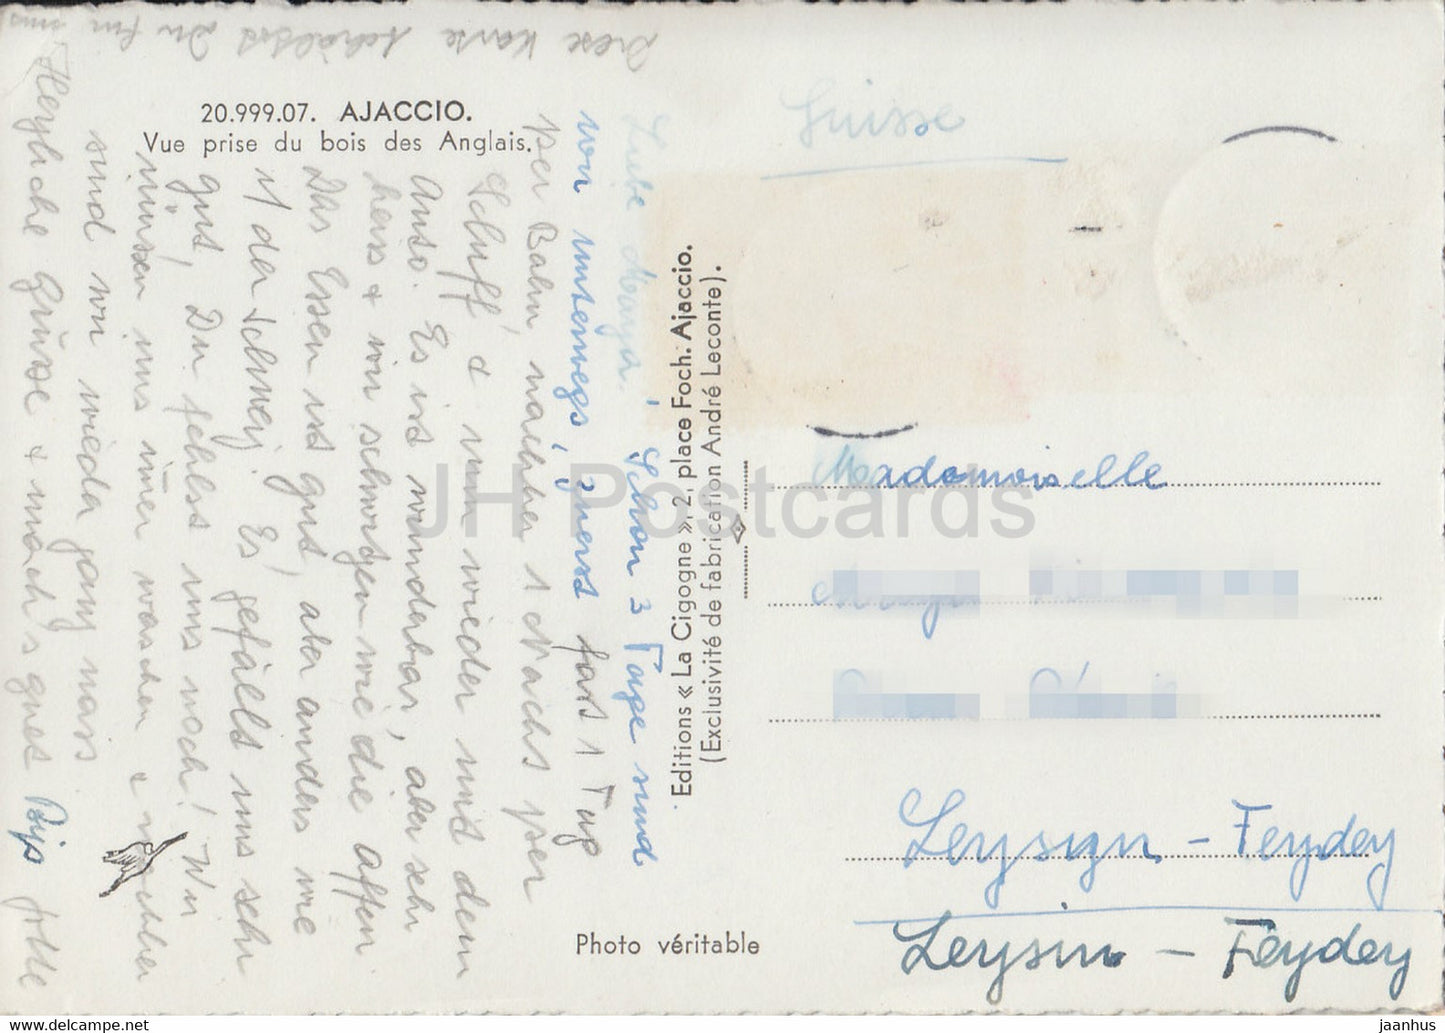 20.999.07. AJACCIO.
Vue prise du bois des Anglais.
Liebe Maya! Schon 3 Tage sind
wir unterwegs, zuerst fast 1 Tag
per Bahn, nacher 1 Nacht per
Schiff & nun wieder mit dem
Auto. Es ist wunderbar, aber sehr
heiss & wir schwitzen wie die Affen.
Das Essen ist gut, aber anders wie
i/ der Schweiz. Es gefällt uns sehr
gut, Du fehlst uns noch! Wir
müssen uns immer waschen & nachher
sind wir wieder ganz nass.
Herzliche Grüsse & mach's gut
Diese Karte behältst Du für uns
Editions « La Cigogne », 2, place Foch. Ajaccio.
(Exclusivité de fabrication André Leconte).
Suisse
Mademoiselle
Leysin - Feydey
Leysin - Feydey
Photo véritable
JH Postcards
www.delcampe.net
jaanhus